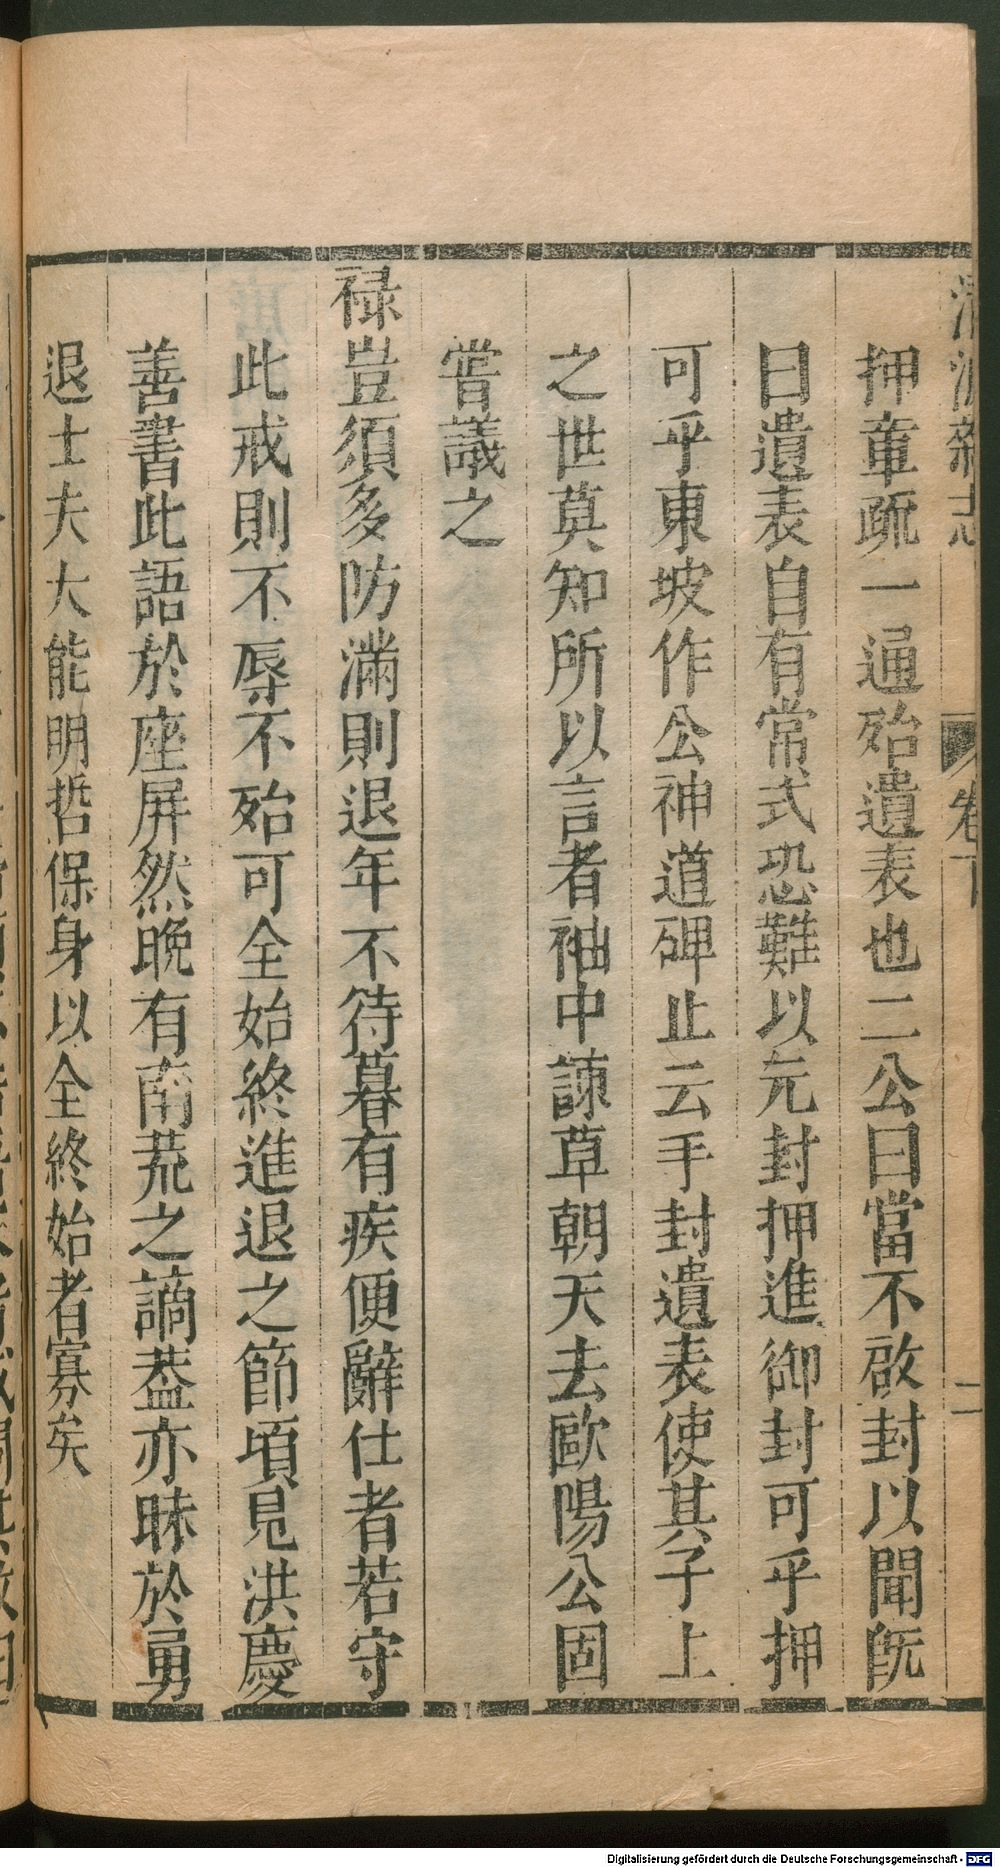 清波雜志 卷下 二
押章疏一通殆遺表也二公曰當不啟封以聞旣
曰遺表自有常式恐難以元封押進御封可乎押
可乎東坡作公神道碑止云手封遺表使其子上
之世莫知所以言者袖中諫草朝天去歐陽公固
嘗議之
禄豈須多防滿則退年不待暮有疾便辭仕者若守
此戒則不辱不殆可全始終進退之節頃見洪慶
善書此語於座屏然晚有南荒之謫葢亦昧於勇
退士夫大能明哲保身以全終始者寡矣
Digitalisierung gefördert durch die Deutsche Forschungsgemeinschaft - DFG